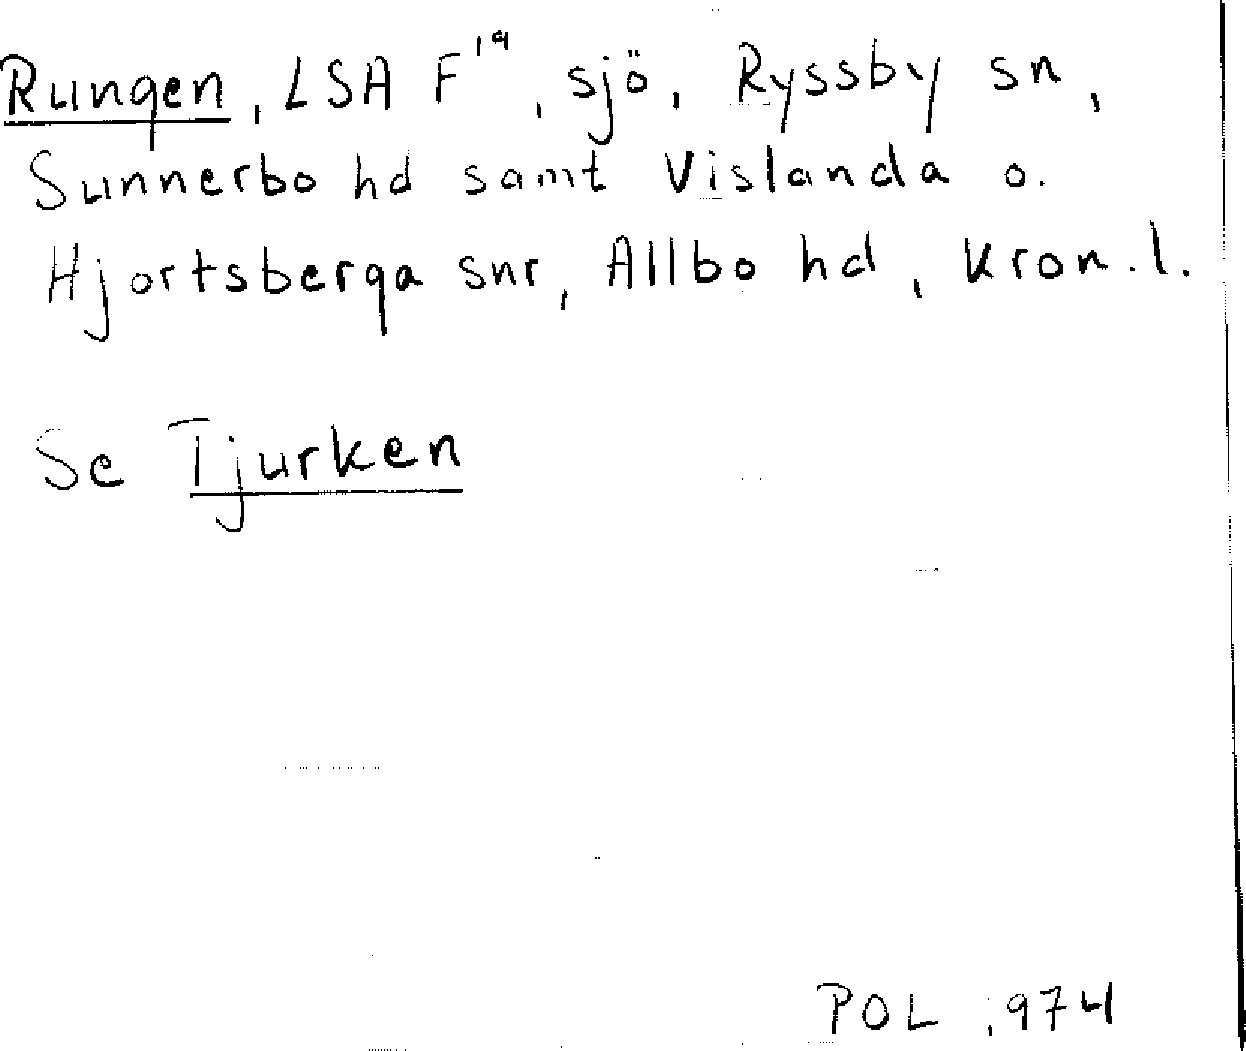 Rungen, LSA F¹⁹, sjö, Ryssby sn,
Sunnerbo hd samt Vislanda o.
Hjortsberga snr, Allbo hd, Kron. l.
Se Tjurken
POL 1974